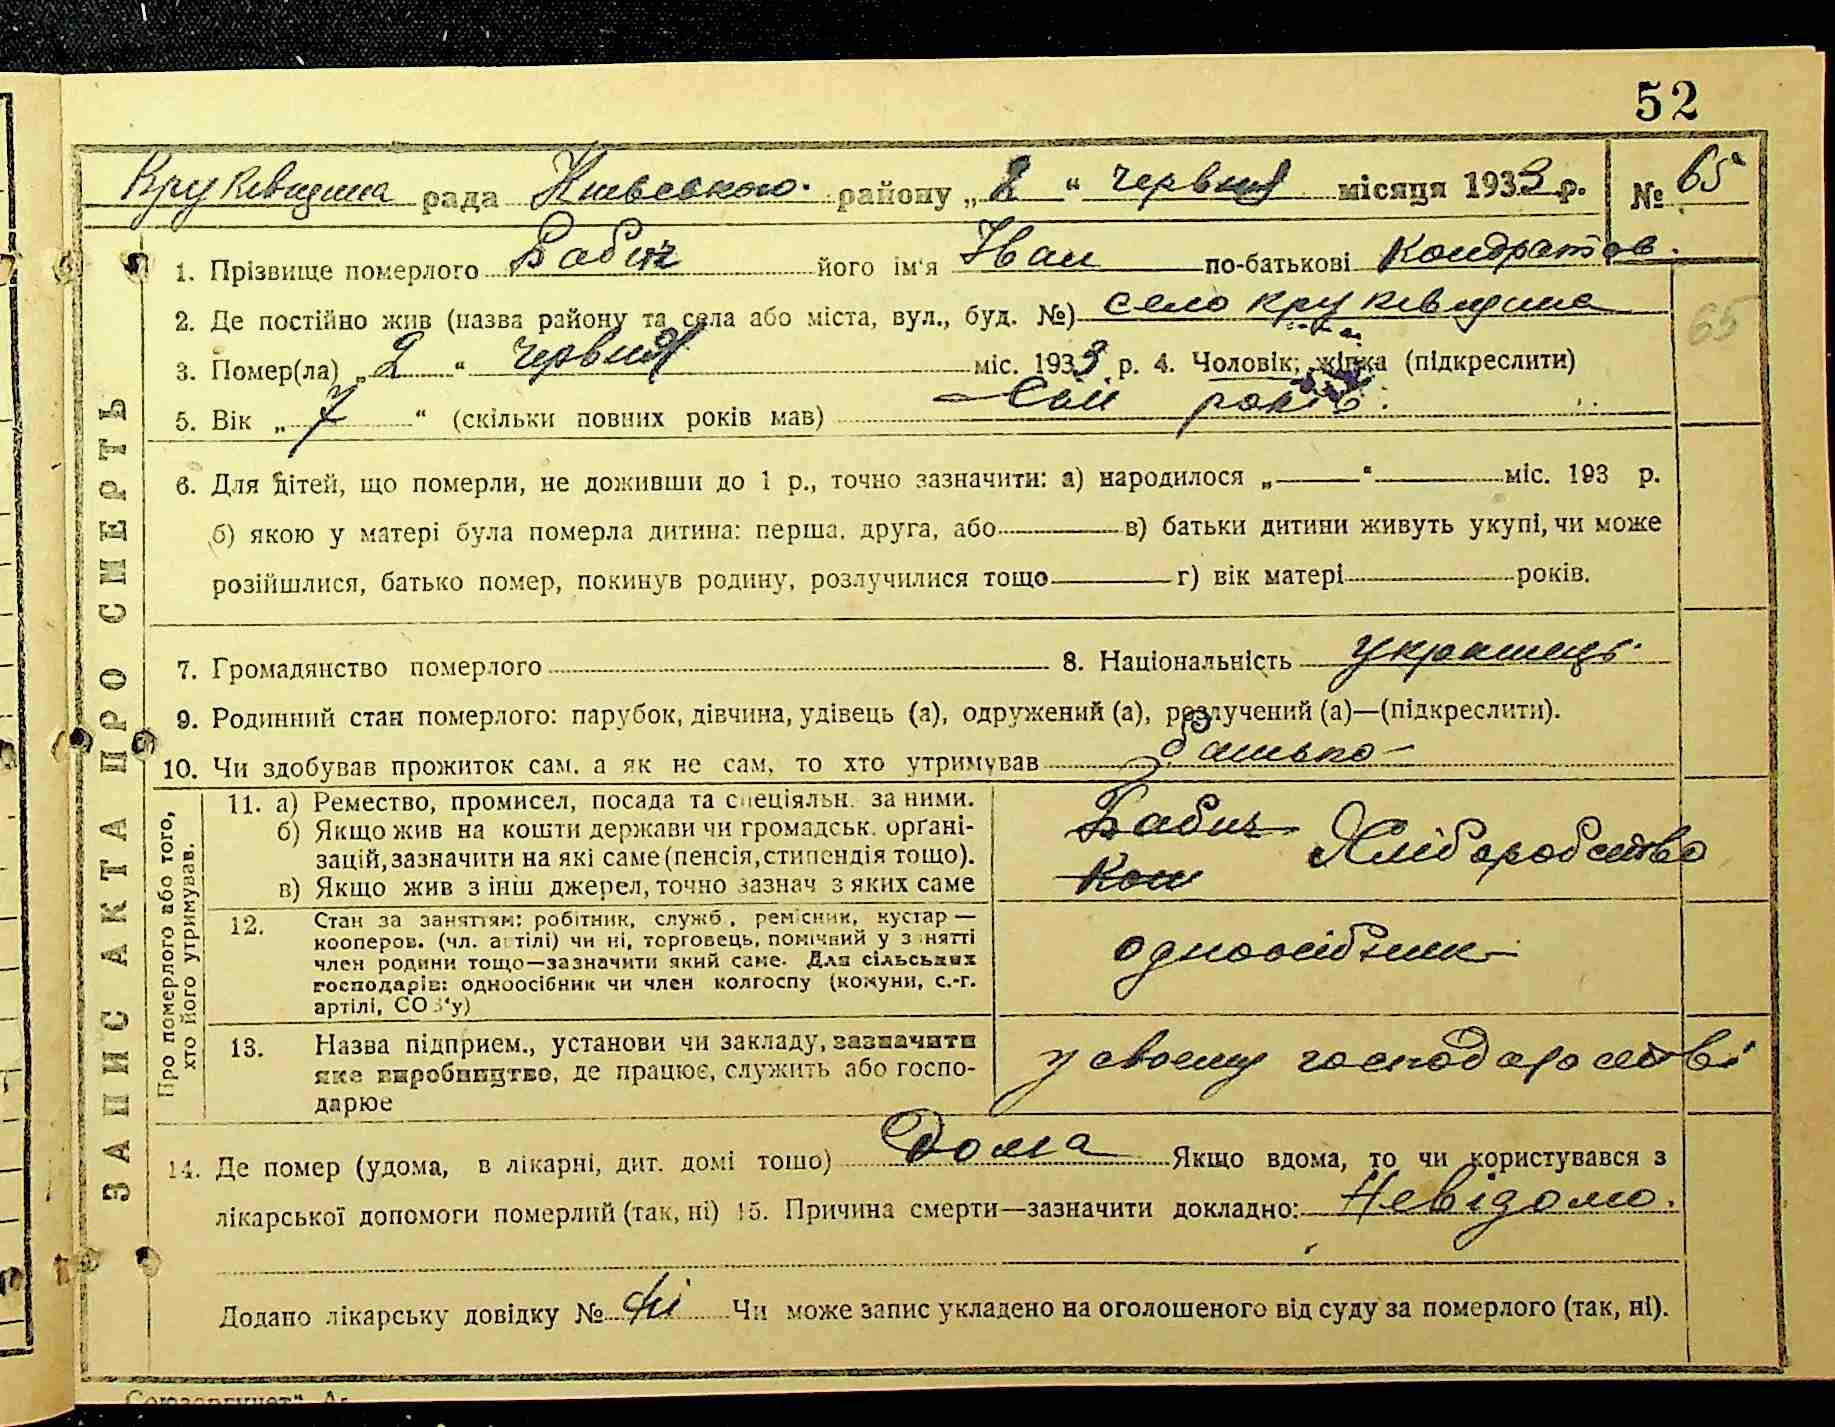 52
Круківщина рада Київського району „2“ червня місяця 1933 р. № 65
1. Прізвище померлого Бабич його ім'я Іван по-батькові Кондратов.
2. Де постійно жив (назва району та села або міста, вул., буд. №) село Круківщина
65
3. Помер(ла) „2“ червня міс. 1933 р. 4. Чоловік; жінка (підкреслити)
5. Вік „7“ (скільки повних років мав) Сім років.
6. Для дітей, що померли, не доживши до 1 р., точно зазначити: а) народилося „—“ — міс. 193 р.
б) якою у матері була померла дитина: перша, друга, або — в) батьки дитини живуть укупі, чи може
розійшлися, батько помер, покинув родину, розлучилися тощо — г) вік матері — років.
7. Громадянство померлого — 8. Національність українець.
9. Родинний стан померлого: парубок, дівчина, удівець (а), одружений (а), розлучений (а)—(підкреслити).
10. Чи здобував прожиток сам, а як не сам, то хто утримував батько
ЗАПИС АКТА ПРО СМЕРТЬ
Про померлого або того,
хто його утримував.
11. а) Ремество, промисел, посада та спеціяльн. за ними.
б) Якщо жив на кошти держави чи громадськ. органі-
зацій, зазначити на які саме (пенсія, стипендія тощо).
в) Якщо жив з інш джерел, точно зазнач з яких саме
Бабич
Кон
Хліборобство
12. Стан за заняттям: робітник, служб., ремісник, кустар —
кооперов. (чл. артілі) чи ні, торговець, помічний у занятті
член родини тощо—зазначити який саме. Для сільських
господарів: одноосібник чи член колгоспу (комуни, с.-г.
артілі, СОЗ'у)
одноосібник
13. Назва підприєм., установи чи закладу, зазначити
яке виробництво, де працює, служить або госпо-
дарює
у своєму господарстві
14. Де помер (удома, в лікарні, дит. домі тощо) Дома Якщо вдома, то чи користувався з
лікарської допомоги померлий (так, ні) 15. Причина смерти—зазначити докладно: Невідомо.
Додано лікарську довідку № ні Чи може запис укладено на оголошеного від суду за померлого (так, ні).